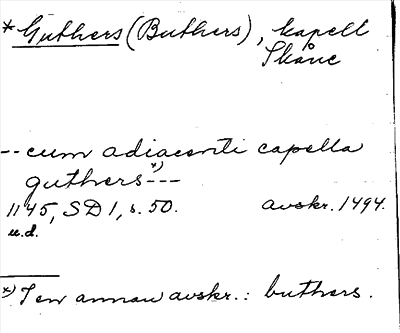 * Guthers (Buthers), kapell
Skåne
-- cum adiacenti capella
guthers x) ---
1145, SD 1, s. 50. avskr. 1494.
u.d.
x) I en annan avskr.: buthers.